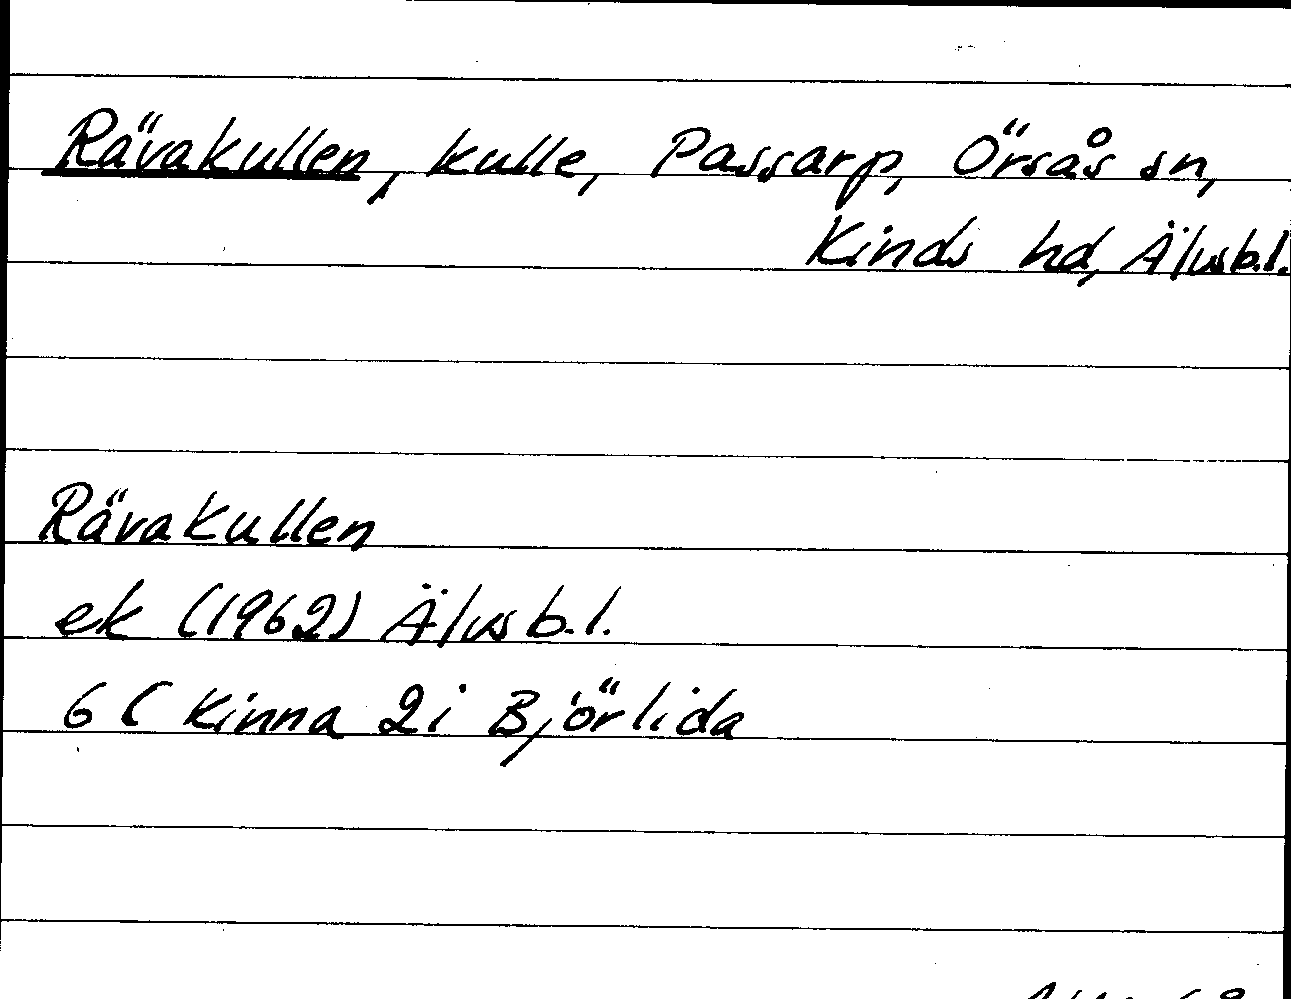 Rävakullen, kulle, Passarp, Örsås sn,
Kinds hd, Älvsb.l.
Rävakullen
ek (1962) Älvsb.l.
6 C Kinna 2i Björlida